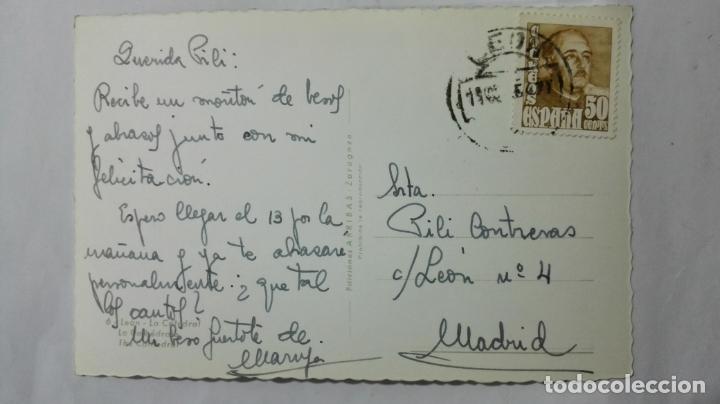 Querida Pili:
Recibe un montón de besos
y abrasos junto con mi
felicitación.
Espero llegar el 13 por la
mañana y ya te abrasare
personalmente ¿que tal
los cantos?
Un beso fuertote de
Maruja
6 León - La Catedral
The Cathedral
Postales ARRIBAS - Zaragoza
Prohibida la reproducción
LEON
CORREOS
ESPAÑA
50
CENTS
Srta.
Pili Contreras
c/León nº 4
Madrid
todocoleccion
todocoleccion.net